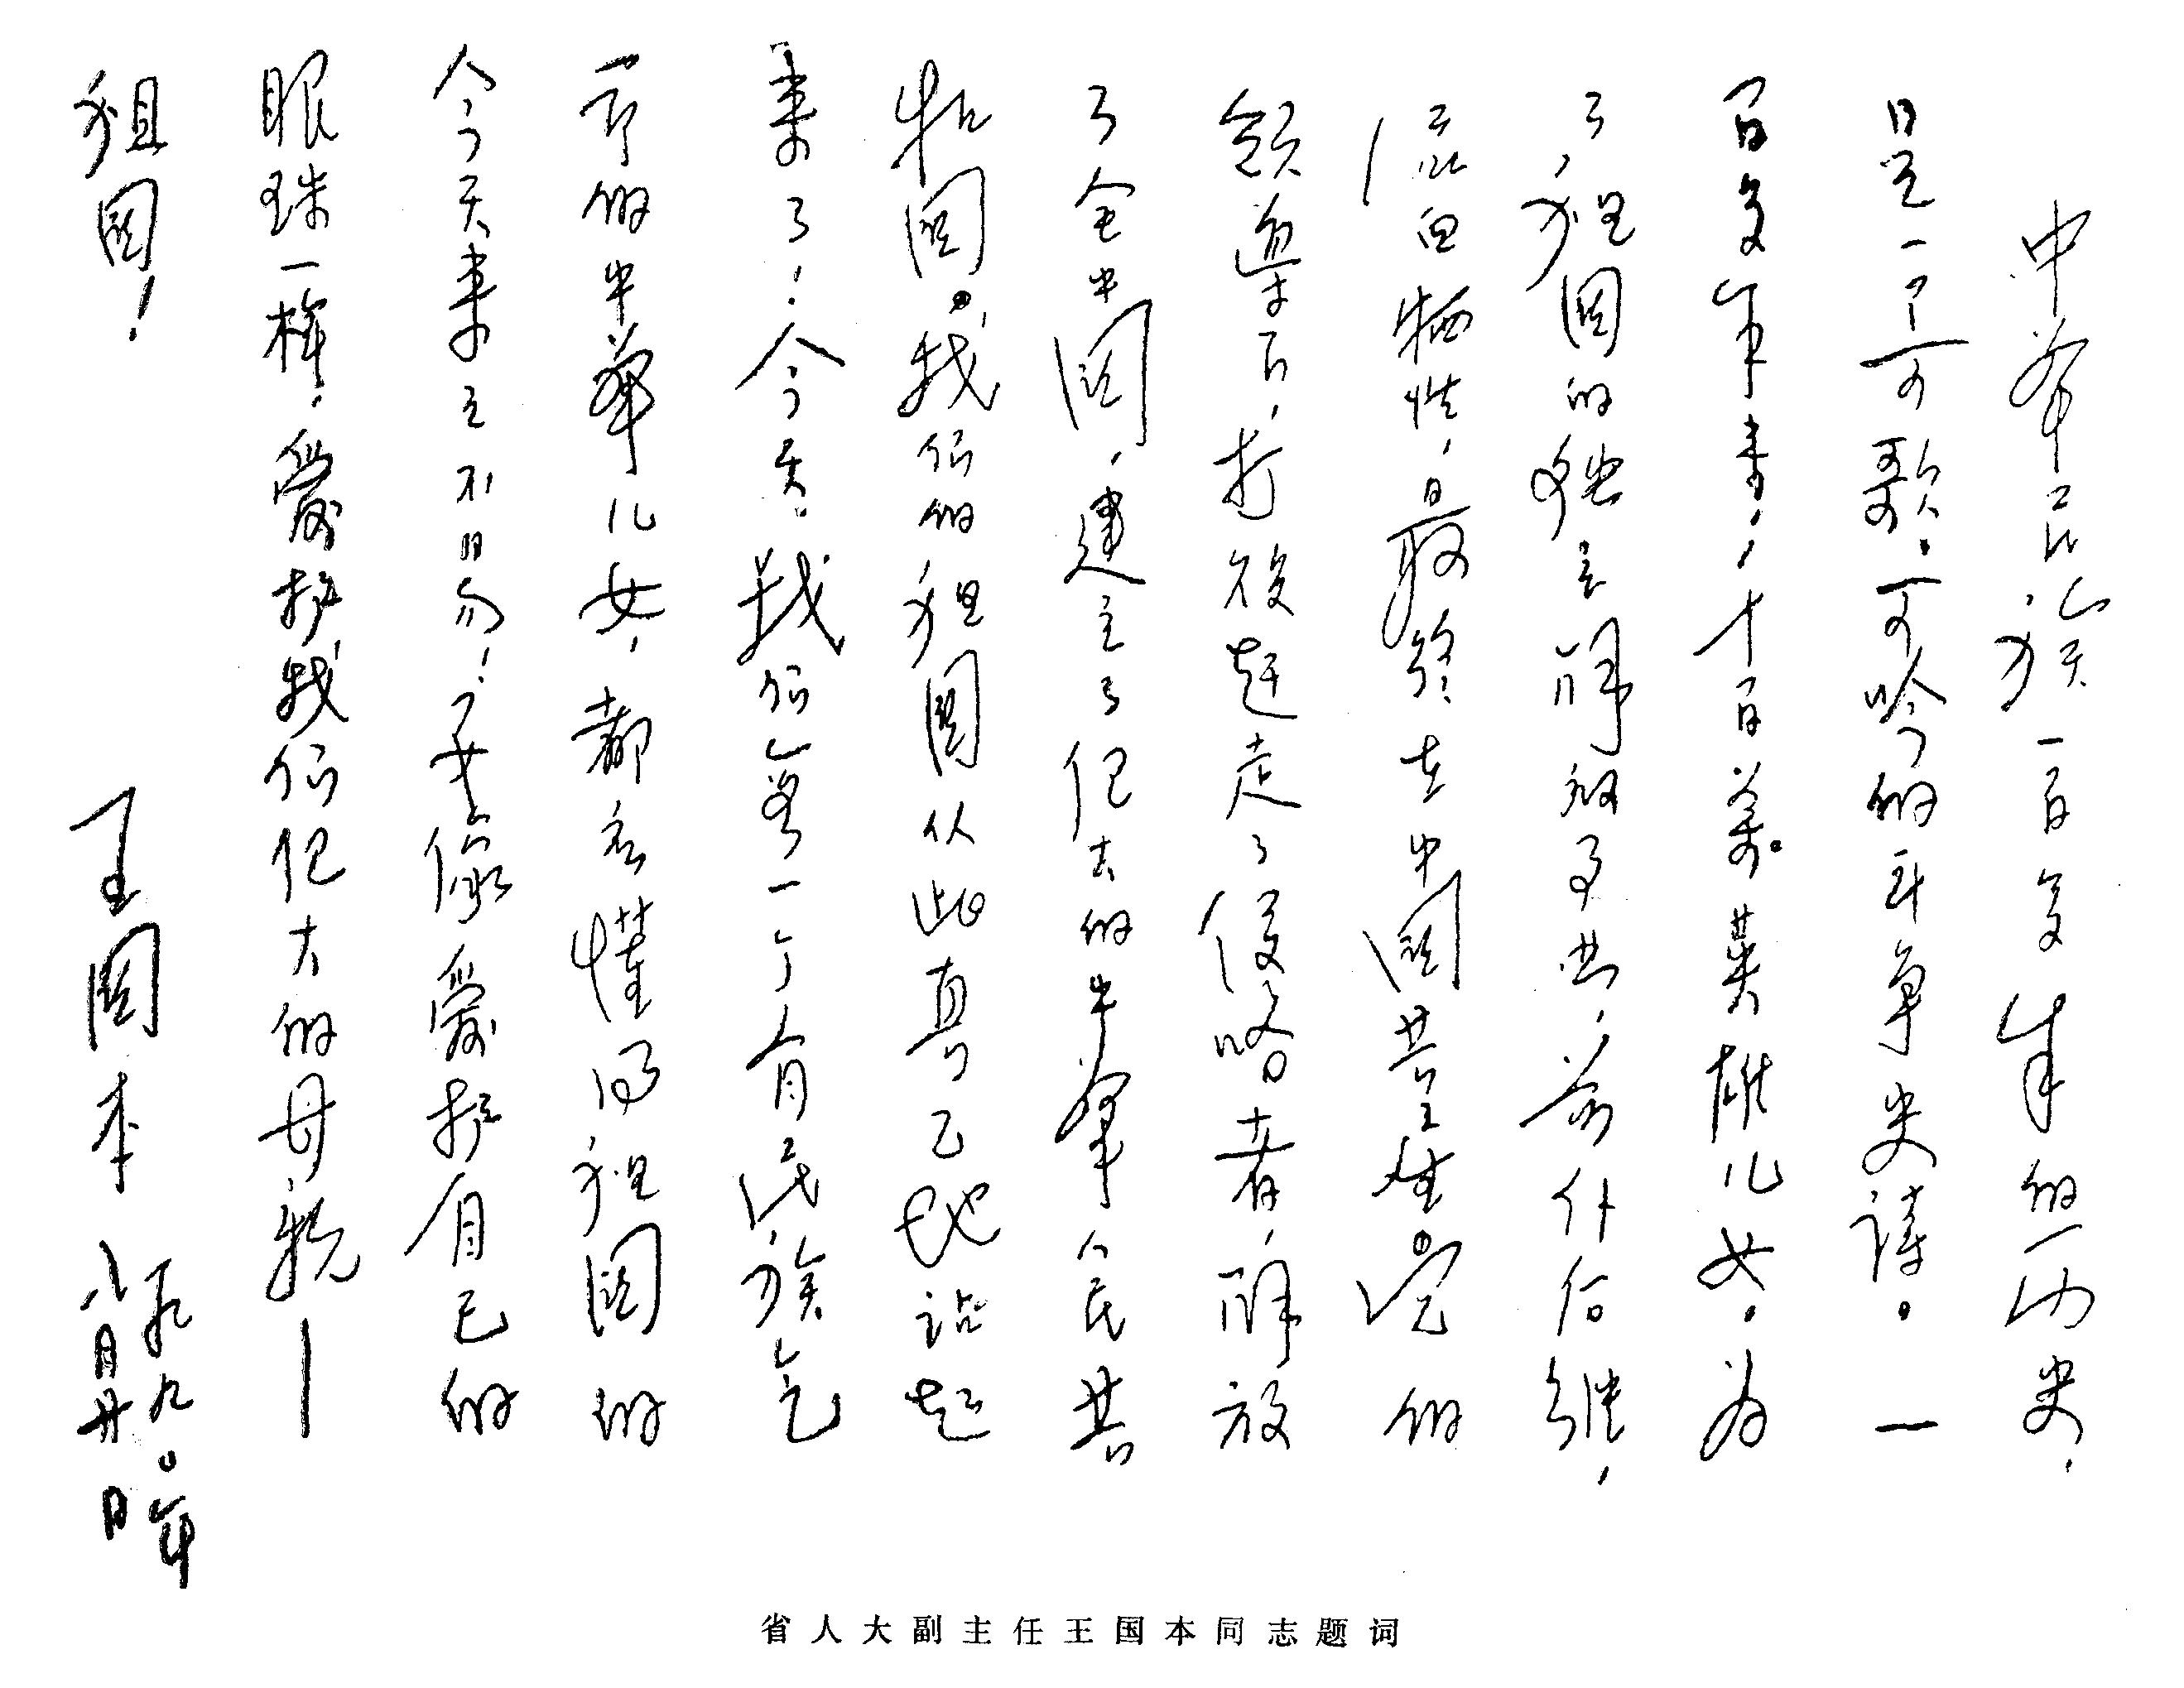 中华民族一百多年的历史，
是一部可歌可吟的斗争史诗。一
百多年来，千百万英雄儿女，为
了祖国的独立解放事业，前仆后继，
流血牺牲，最终在中国共产党的
领导下，打败赶走了侵略者，解放
了全中国，建立了伟大的中华人民共
和国。我们的祖国从此真正地站起
来了！今天，我们每一个有民族气
节的中华儿女，都应懂得祖国的
今天来之不易！要像爱护自己的
眼珠一样，爱护我们伟大的母亲—
祖国！
王国本
一九九〇年
八月廿日
省人大副主任王国本同志题词